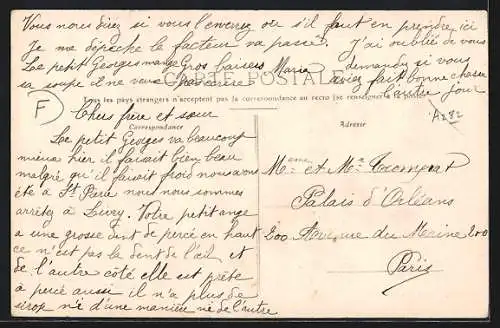 Vous nous direz si vous l'enverrez ou s'il faut en prendre ici
Je me dépêche le facteur va passer. J'ai oublié de vous
Le petit Georges mange Gros baisers Marie demander si vous
sa soupe il ne vous aviez fait bonne chasse
l'autre jour
CARTE POSTALE
Tous les pays étrangers n'acceptent pas la correspondance au recto (se renseigner à la poste)
F
A282
Correspondance
Adresse
Chers frère et sœur
Le petit Georges va beaucoup
mieux hier il faisait bien beau
malgré qu'il faisait froid nous avons
été à St Pierre nous nous sommes
arrêtés à Livry. Votre petit ange
a une grosse dent de percé en haut
ce n'est pas la dent de l'œil et
de l'autre côté elle est prête
à percé aussi il n'a plus de
sirop n'é d'une manière né de l'autre
Mme et Mr
Palais d'Orléans
200 Avenue du Maine 200
Paris